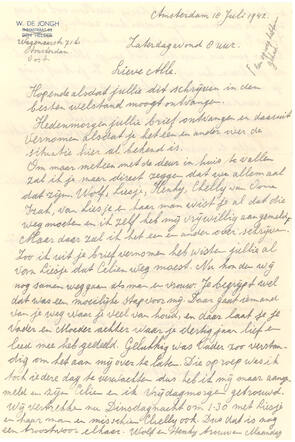 W. DE JONGH
DEN HELDER
Wagenaarstr. 71 b
Amsterdam
Oost
Amsterdam 18 Juli 1942.
Zaterdagavond 8 uur.
Lieve Alle.
Hopende alsdat jullie dit schrijven in den
besten welstand moogt ontvangen.
Hedenmorgen jullie brief ontvangen en daaruit
vernomen alsdat je het een en ander over de
situatie hier al bekend is.
Om maar meteen met de deur in huis te vallen
zal ik je maar direct zeggen dat we allemaal
dat zijn Wolf, Liesje, Henky, Chelly van Oome
Izak, van Liesje en haar man wist je al dat die
weg moeten en ik zelf heb mij vrijwillig aangemeld.
Maar daar zal ik het een en ander over schrijven.
Zoo ik uit je brief vernomen heb wisten jullie al
van Liesje dat Celien weg moest. Nu konden wij
nog samen weg gaan als man en vrouw. Je begrijpt wel
dat was een moeilijke stap voor mij. Daar gaat iemand
van je weg waar je veel van houd, en daar laat je je
Vader en Moeder achter waar je dertig jaar lief en
leed mee hebt gedeeld. Gelukkig was Vader zoo verstan-
dig om het aan mij over te laten. Die oproep was ik
toch iedere dag te verwachten dus heb ik mij maar aange-
meld en zijn Celien en ik Vrijdagmorgen getrouwd.
Wij vertrekken nu Dinsdagnacht om 1.30 met Liesje
en haar man en misschien Chelly ook. Dus dat is nog
een troost voor elkaar. Wolf en Henky Bruin en Maandag